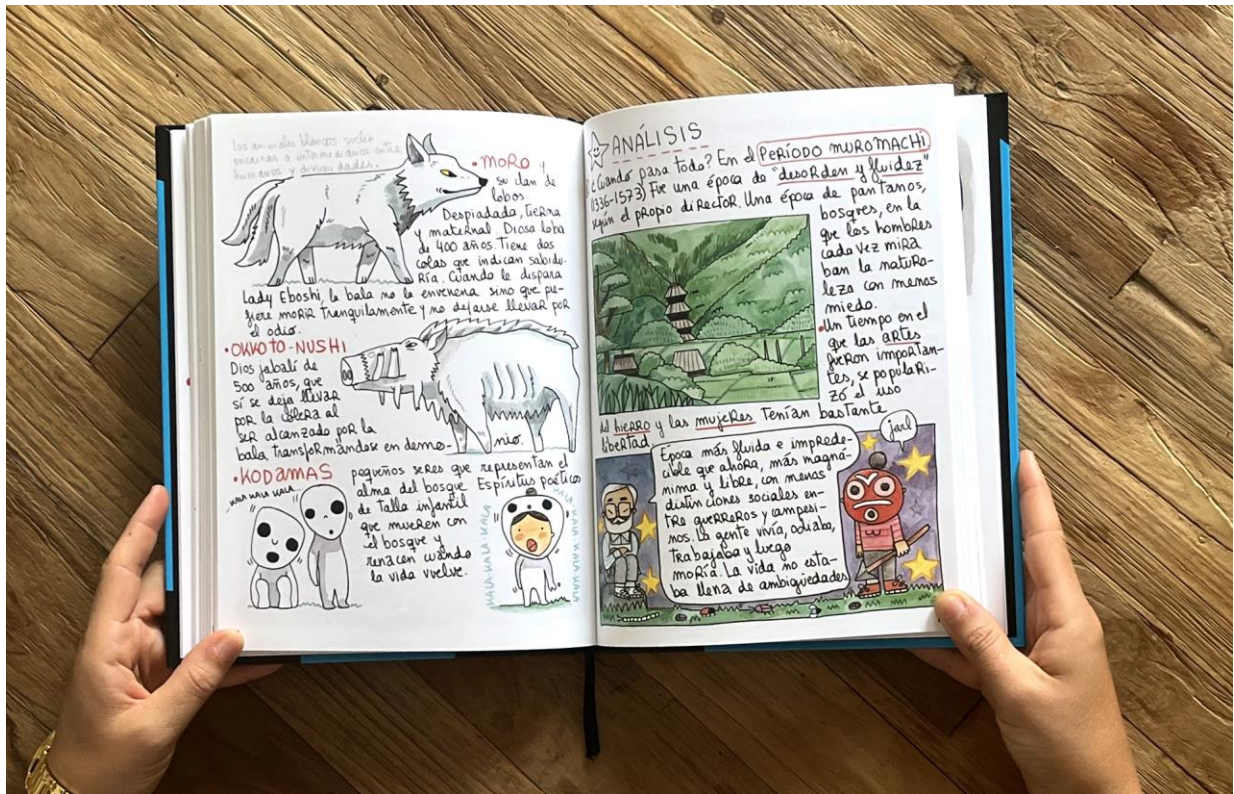 Los animales blancos suelen
encarnar a intermediarios entre
humanos y divinidades.
• MORO y
su clan de
lobos.
Despiadada, tierna
y maternal. Diosa loba
de 400 años. Tiene dos
colas que indican sabidu-
ría. Cuando le dispara
Lady Eboshi, la bala no la envenena sino que pre-
fiere morir tranquilamente y no dejarse llevar por
el odio.
• OKKOTO-NUSHI
Dios jabalí de
500 años, que
sí se deja llevar
por la cólera al
ser alcanzado por la
bala transformándose en demo-
nio.
• KODAMAS
KALA KALA KALA
pequeños seres que representan el
alma del bosque
de talla infantil
que mueren con
el bosque y
renacen cuando
la vida vuelve.
Espíritus poéticos
KALA-KALA-KALA
KALA
KALA-KALA-KALA
ANÁLISIS
¿Cuándo pasa todo? En el PERÍODO MUROMACHI
(1336-1573) Fue una época de "desorden y fluidez"
según el propio director. Una época de pantanos,
bosques, en la
que los hombres
cada vez mira
ban la natura-
leza con menos
miedo.
• Un tiempo en el
que las artes
fueron importan-
tes, se populari-
zó el uso
del hierro y las mujeres tenían bastante
libertad
Época más fluida e imprede-
cible que ahora, más magná-
nima y libre, con menos
distinciones sociales en-
tre guerreros y campesi-
nos. La gente vivía, odiaba,
trabajaba y luego
moría. La vida no esta-
ba llena de ambigüedades